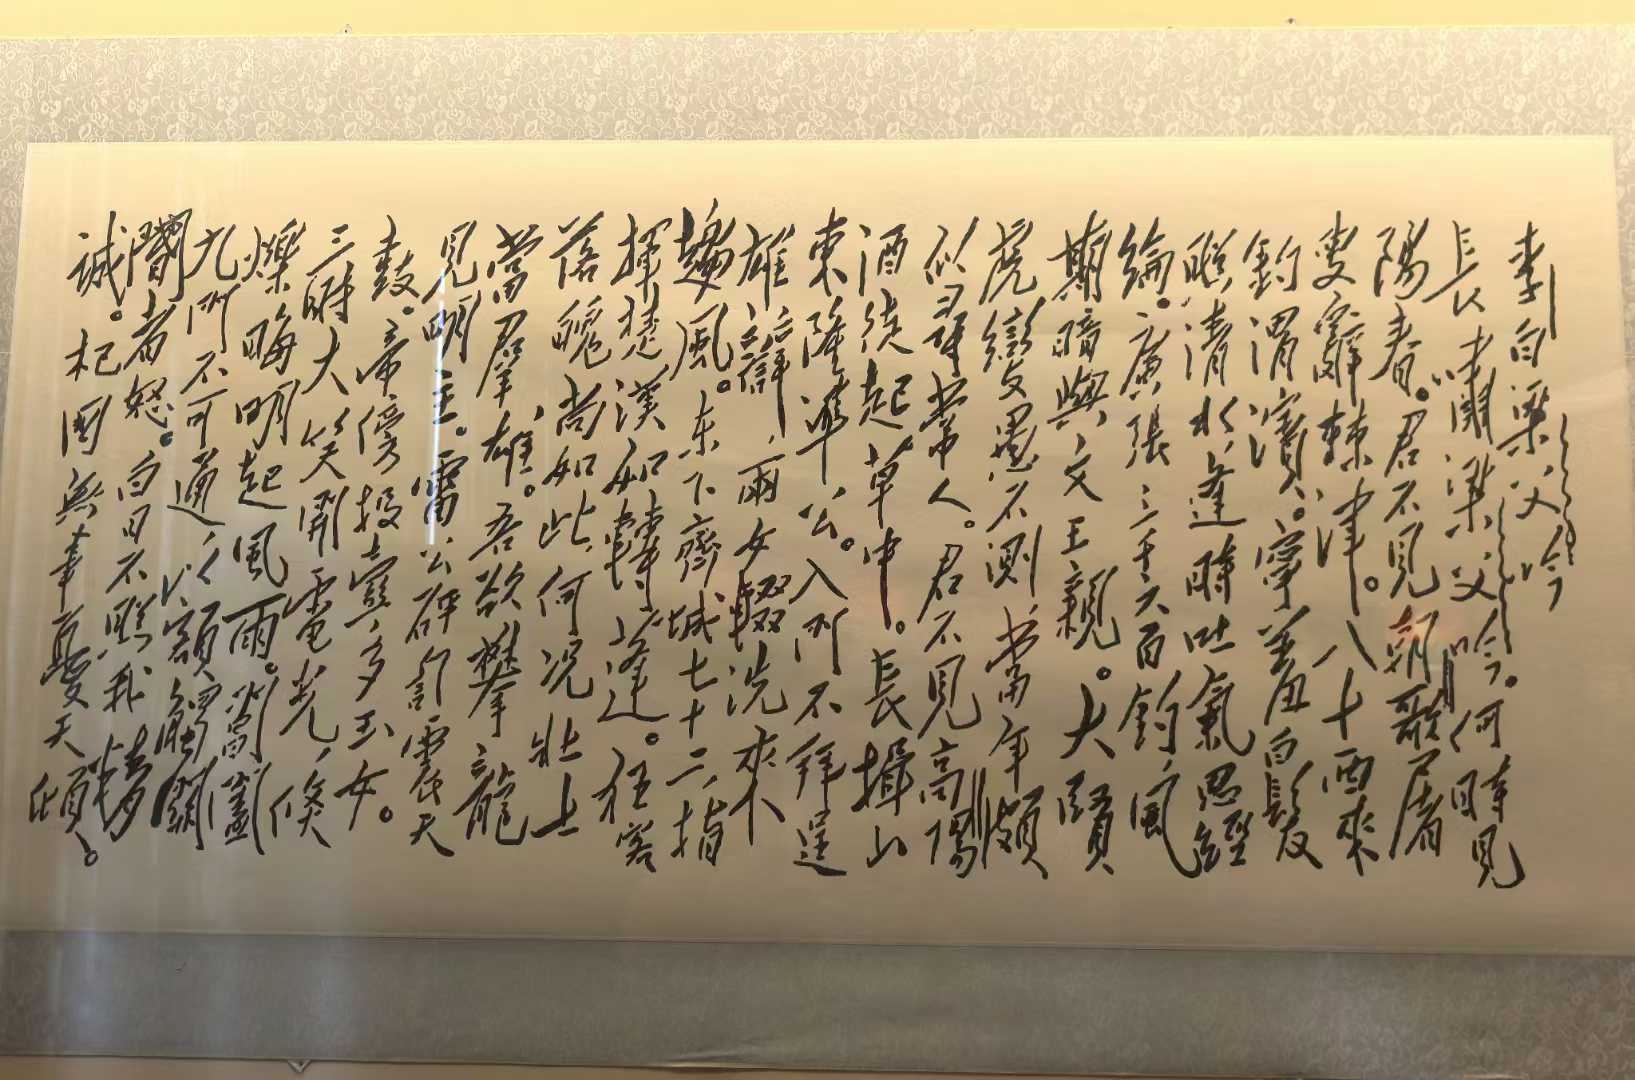 李白梁父吟
長嘯梁父吟。何時見
陽春。君不見朝歌屠
叟辭棘津。八十西來
釣渭濱。寧羞白髮
照清水，逢時吐氣思經
綸。廣張三千六百釣，風
期暗與文王親。大賢
虎變愚不測，當年頗
似尋常人。君不見高陽
酒徒起草中。長揖山
東隆準公。入門不拜逞
雄辯，兩女輟洗來
趨風。東下齊城七十二，指
揮楚漢如轉蓬。狂客
落魄尚如此，何況壯士
當羣雄。吾欲攀龍
見明主。雷公砰訇震天
鼓。帝傍投壺多玉女。
三時大笑開電光，倏
爍晦明起風雨。閶闔
九門不可通，以額觸關
閽者怒。白日不照我精
誠。杞國無事憂天傾。